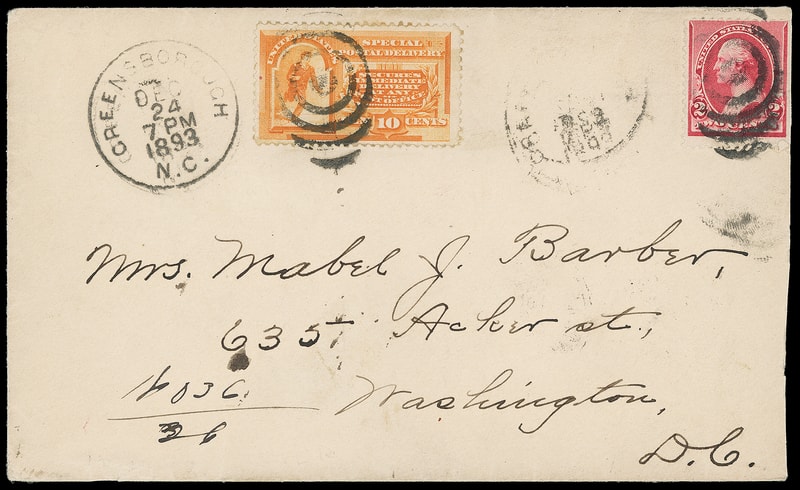 GREENSBOROUGH
DEC
24
7 PM
1893
N.C.
UNITED STATES
SPECIAL
POSTAL DELIVERY
SECURES
IMMEDIATE
DELIVERY
AT ANY
POST OFFICE
10 CENTS
UNITED STATES
2
Mrs. Mabel J. Barber,
635 Acker st.,
Washington,
D.C.